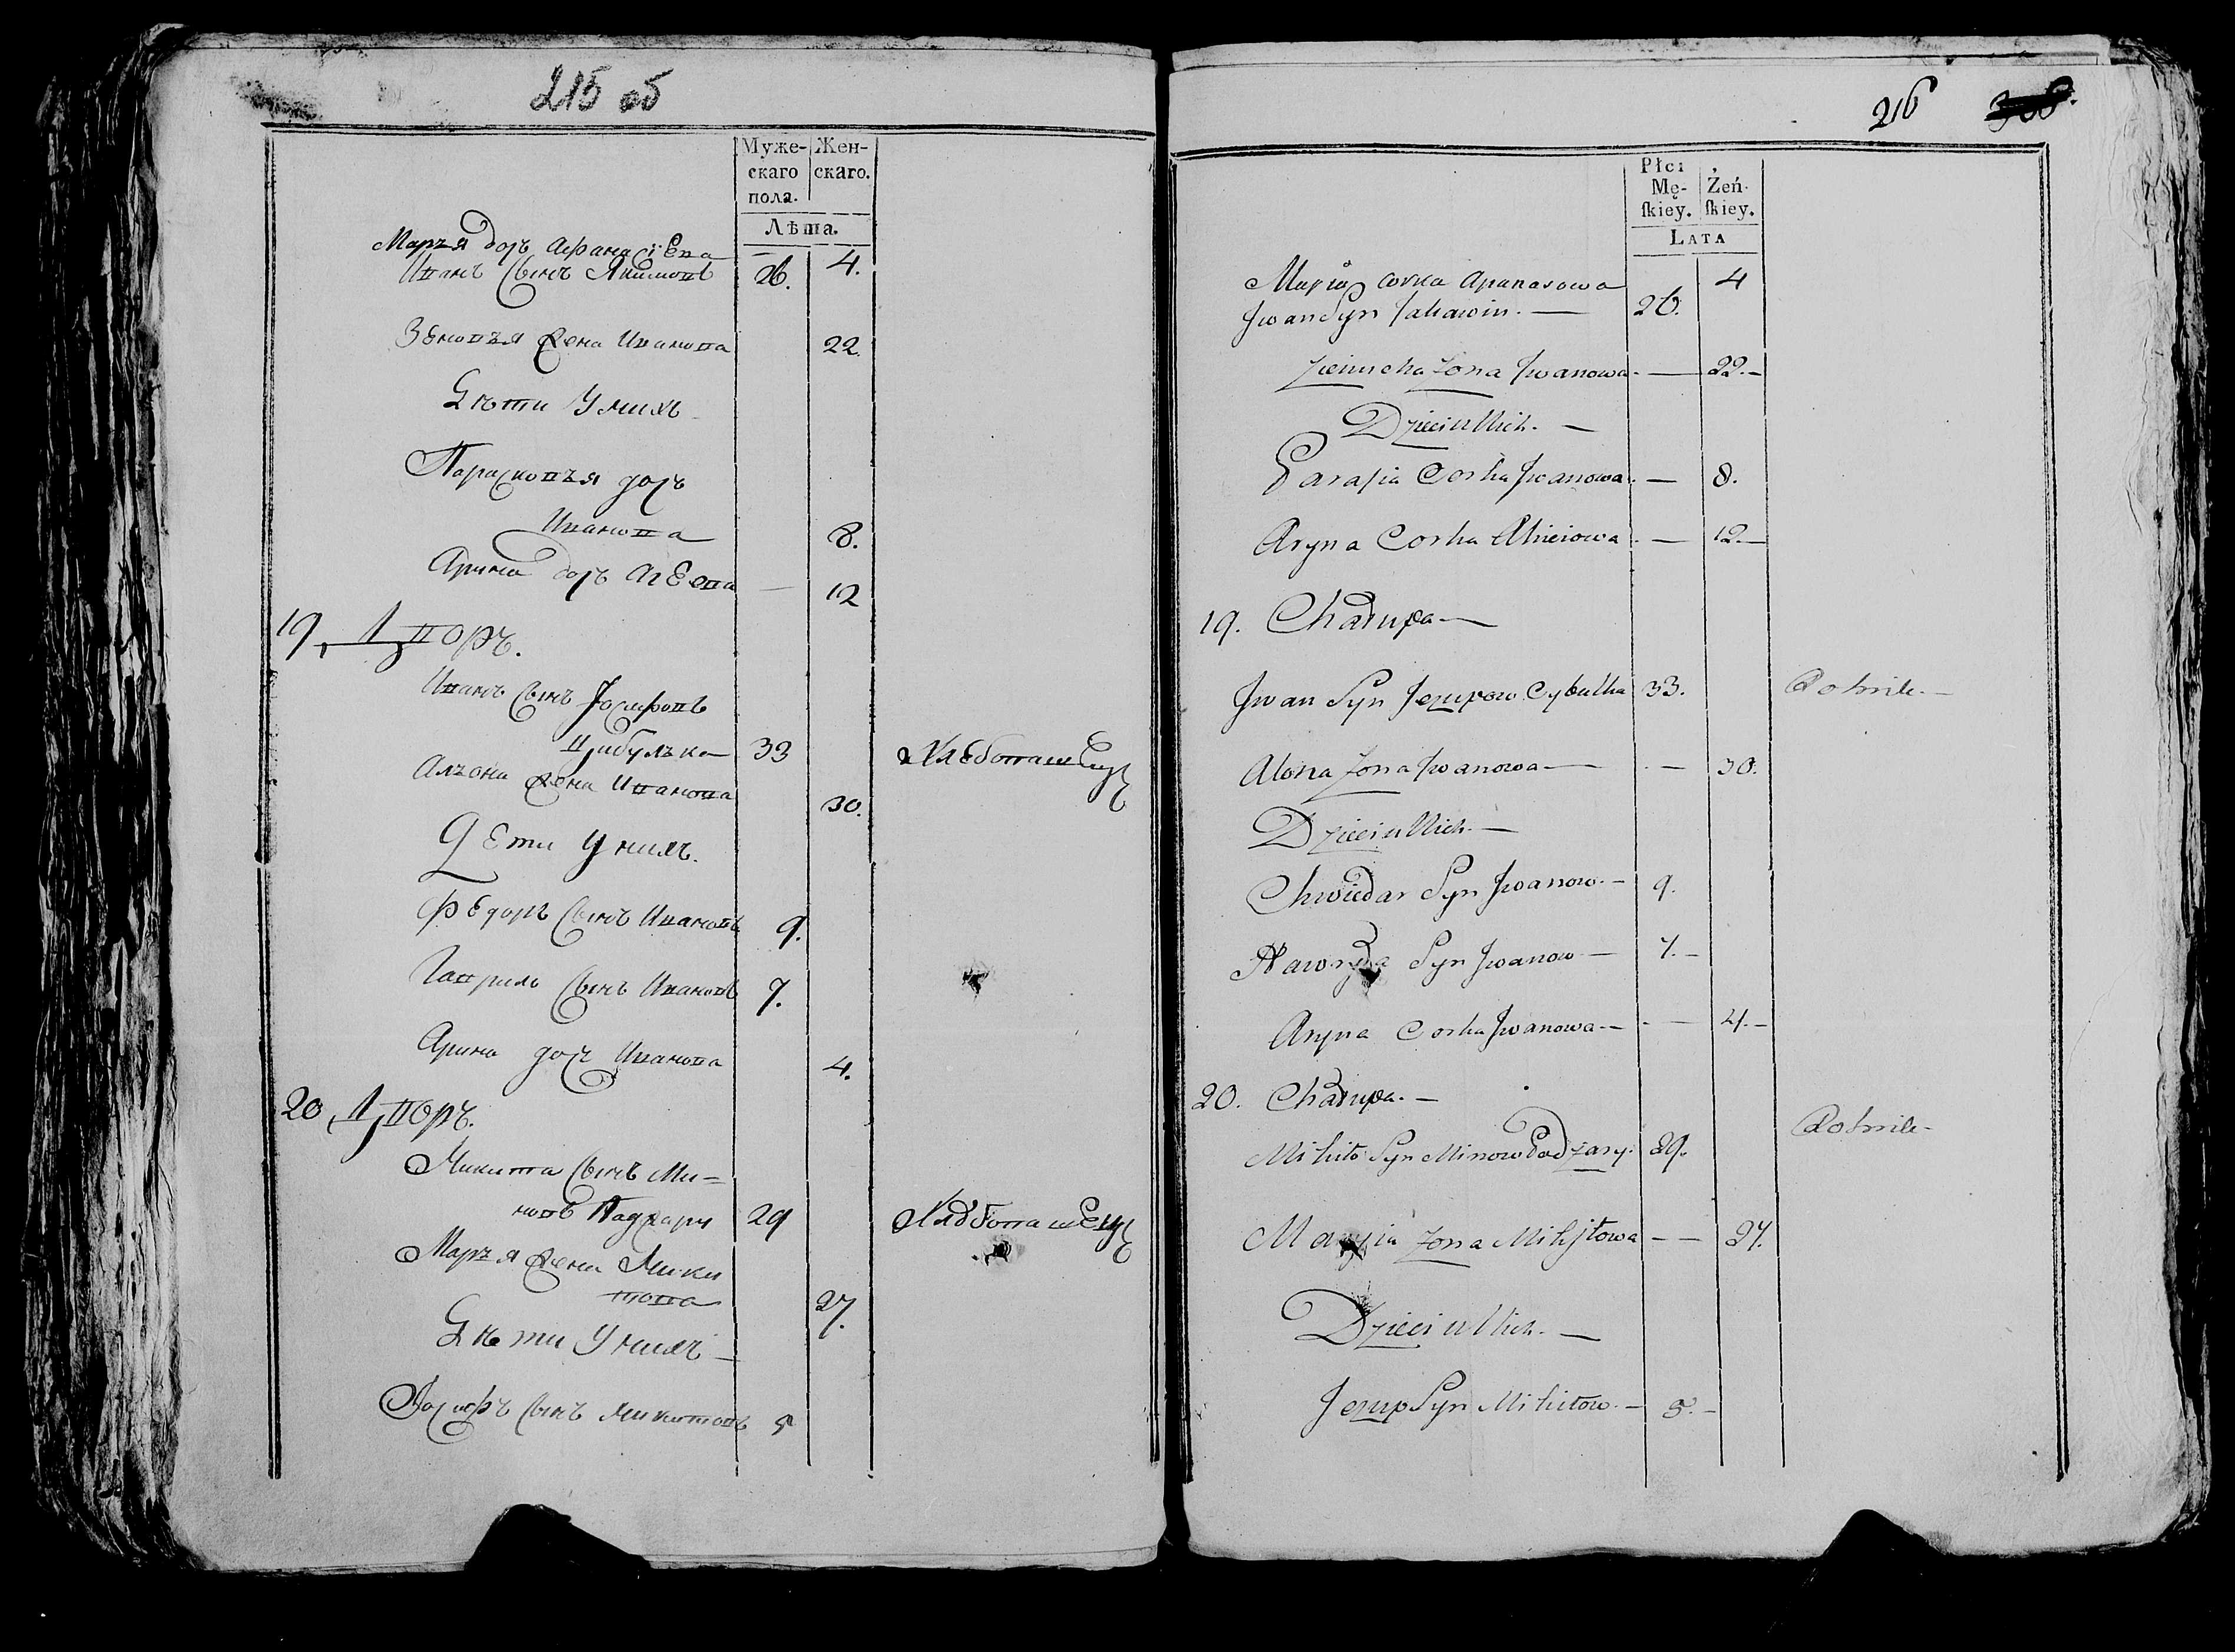 215 об
Муже- Жен-
скаго скаго.
пола.
Лѣта.
Марья дочь Афанасіева 4.
Иванъ сынъ Якимовъ 26.
Зеновья жена Иванова 22.
Дѣти У нихъ
Парасковья дочь
Иванова 8.
Арина дочь Агеева 12
19, Дворъ.
Иванъ сынъ Іосифовъ
Цибулька 33 Хлебопашецъ
Алѣона жена Иванова 30.
Дети У нихъ.
Федоръ сынъ Ивановъ 9.
Гаврило сынъ Ивановъ 7.
Арина дочь Иванова 4.
20, Дворъ.
Микита сынъ Ми-
новъ Паджары 29 Хлѣбопашецъ
Марья жена Мики
това 27.
Дѣти У нихъ
Іосифъ сынъ Микитовъ 5
216
Płci
Mę- Żeń-
ſkiey. ſkiey.
LATA
Maria corka Apanasowa 4
Jwan Syn 26.
Zieniucha Zona Jwanowa 22.
Dzieci u Nich.
Parasia Corka Jwanowa 8.
Aryna Corka 12.
19. Chałupa
Jwan Syn Jezupow Cybulka 33. Rolnik.
Alona Zona Jwanowa 30.
Dzieci u Nich.
Chwiedar Syn Jwanow 9.
Hawryła Syn Jwanow 7.
Aryna Corka Jwanowa 4.
20. Chałupa.
Mikita Syn Minow Padzary 29. Rolnik
Maryia Zona Mikitowa 27.
Dzieci u Nich.
Jezup Syn Mikitow 5.